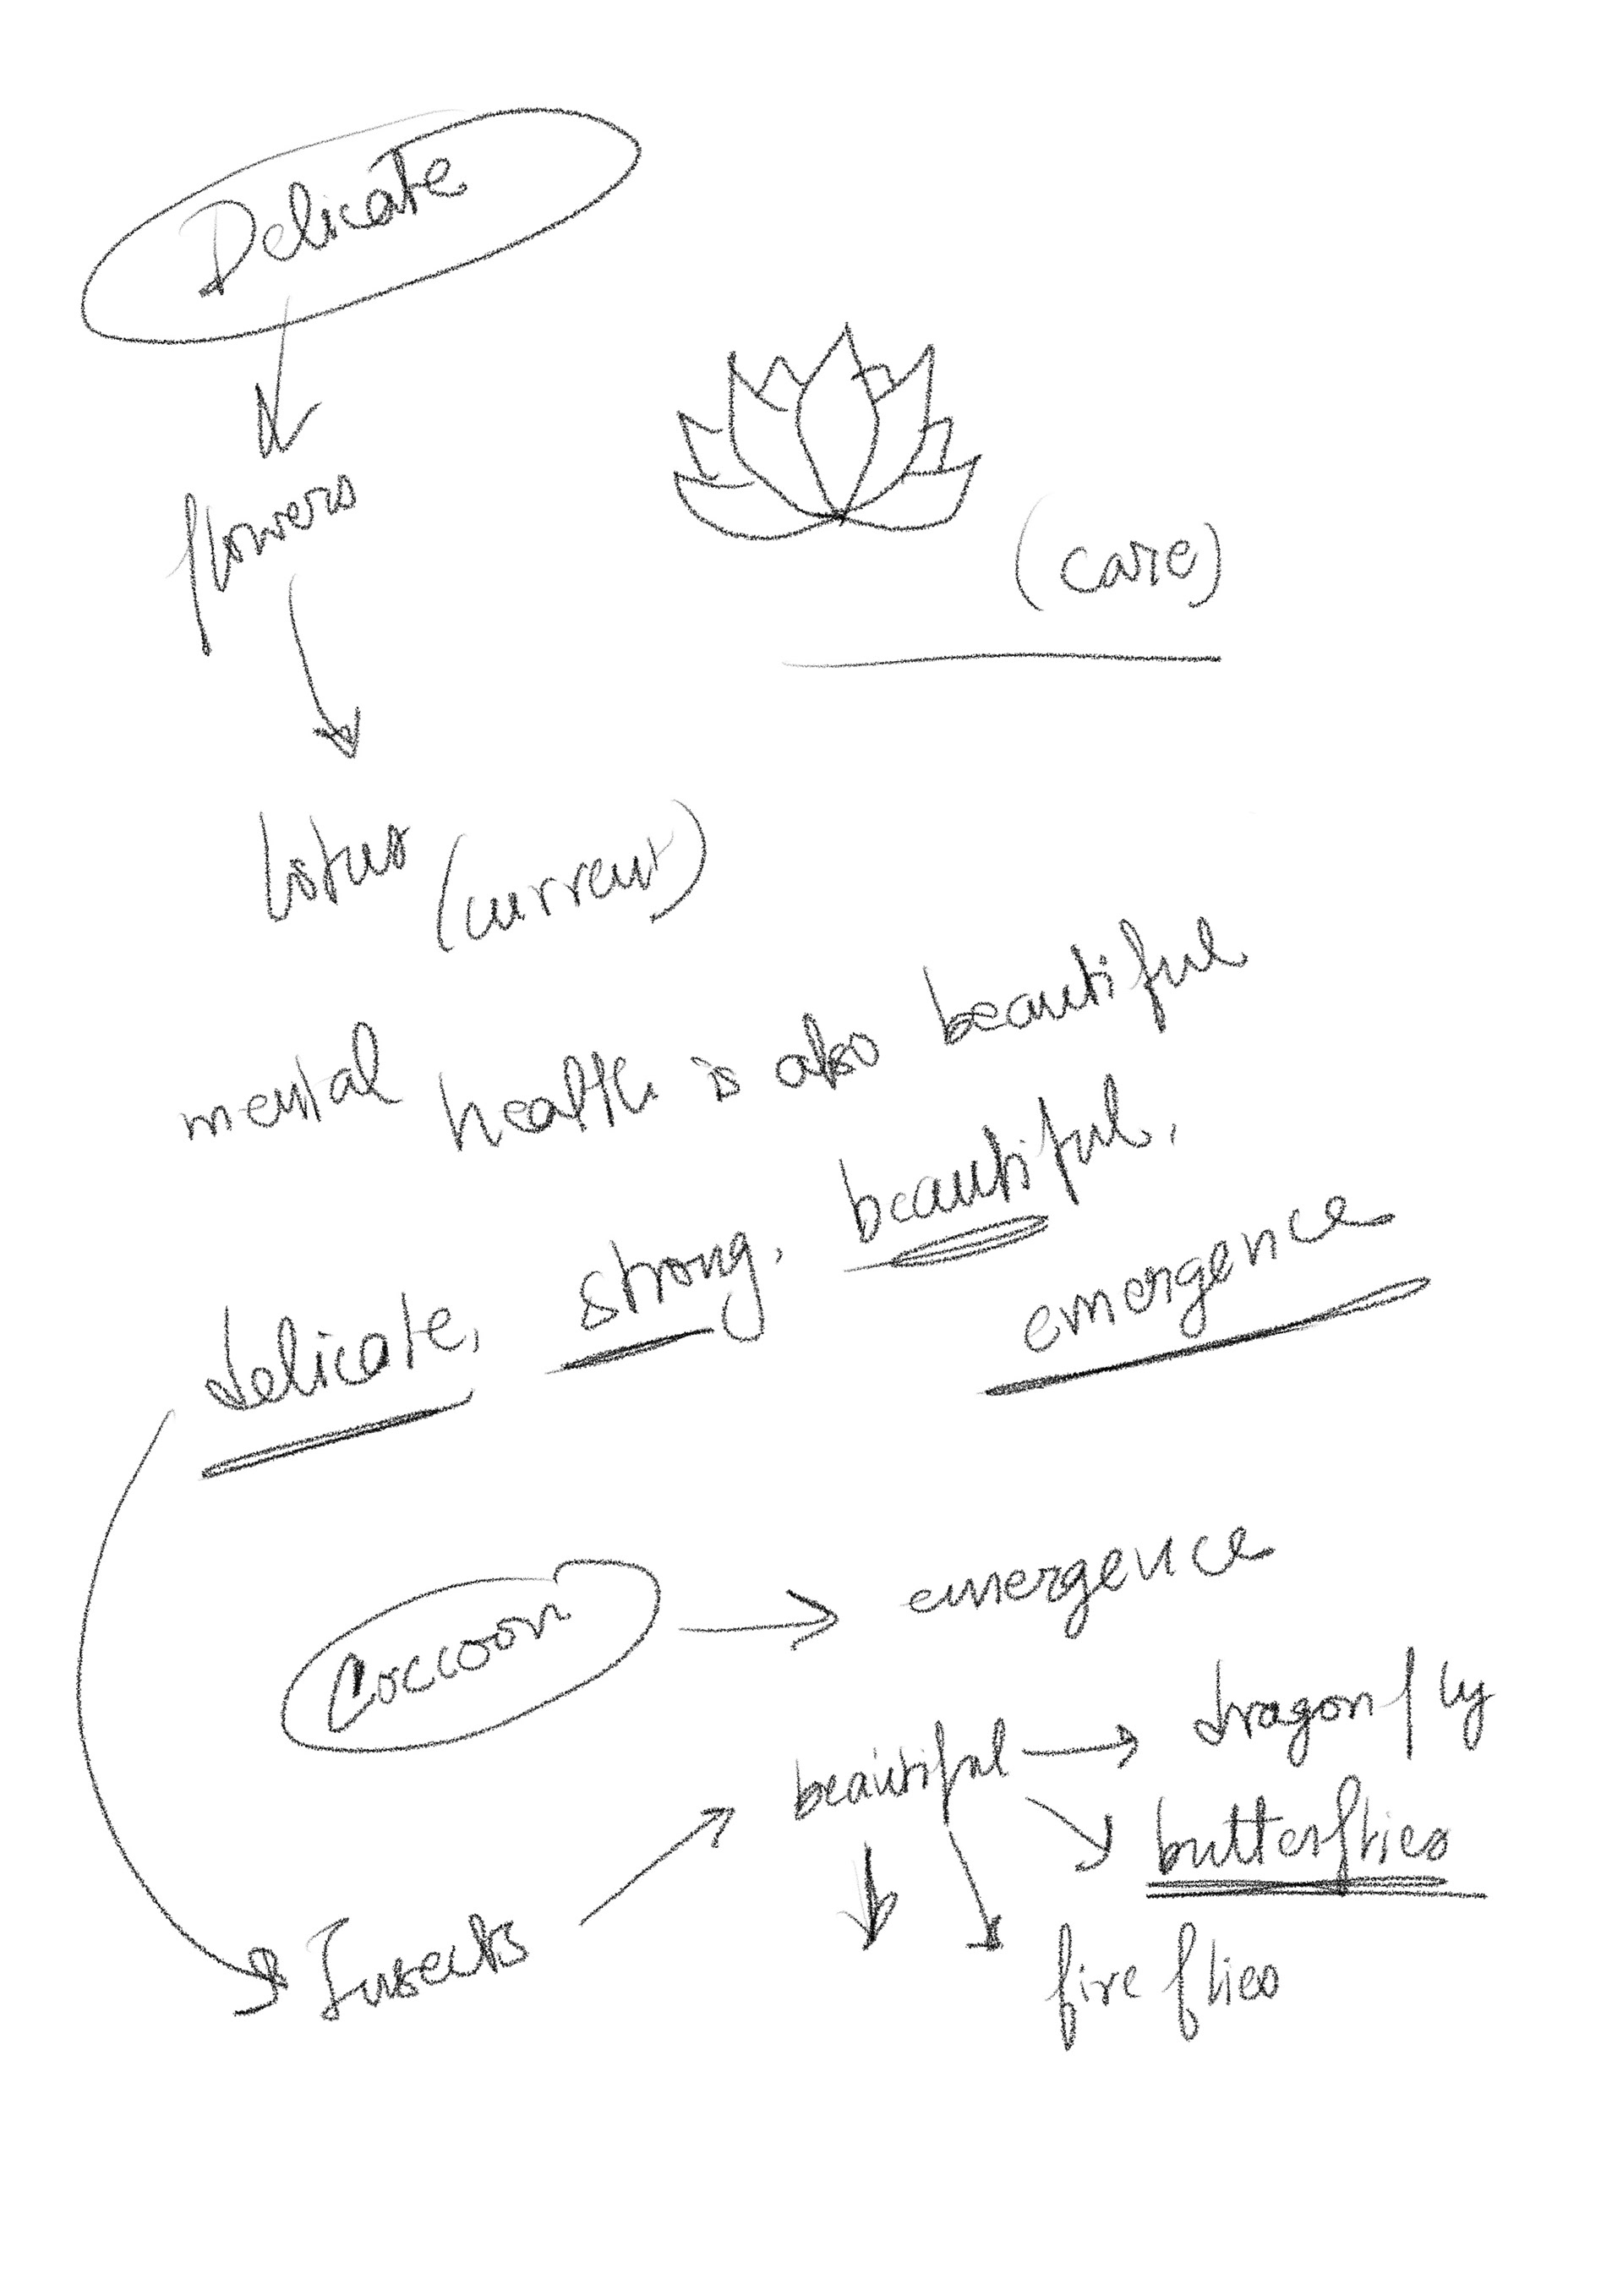 Delicate
flowers
(care)
lotus (current)
mental health is also beautiful
delicate, strong, beautiful,
emergence
Coccoon
emergence
beautiful
dragonfly
butterflies
fire flies
Insects